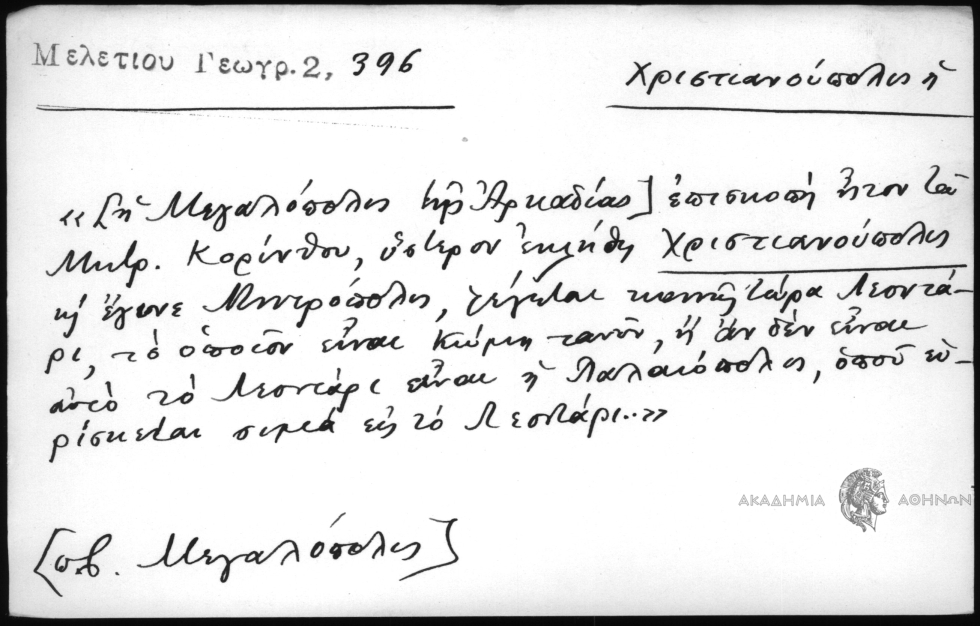 Μελετίου Γεωγρ. 2, 396
Χριστιανούπολις ἡ
«[ἡ Μεγαλόπολις τῆς Ἀρκαδίας] ἐπισκοπὴ ἦτον τοῦ
Μητρ. Κορίνθου, ὕστερον ἐκλήθη Χριστιανούπολις
κ' ἔγινε Μητρόπολις, λέγεται κοινῶς τώρα Λεοντά-
ρι, τὸ ὁποῖον εἶναι κώμη τανῦν, ἢ ἂν δὲν εἶναι
αὐτὸ τὸ Λεοντάρι εἶναι ἡ Παλαιόπολις, ὁποῦ εὑ-
ρίσκεται σιμὰ εἰς τὸ Λεοντάρι..»
[πβ. Μεγαλόπολις]
ΑΚΑΔΗΜΙΑ ΑΘΗΝΩΝ